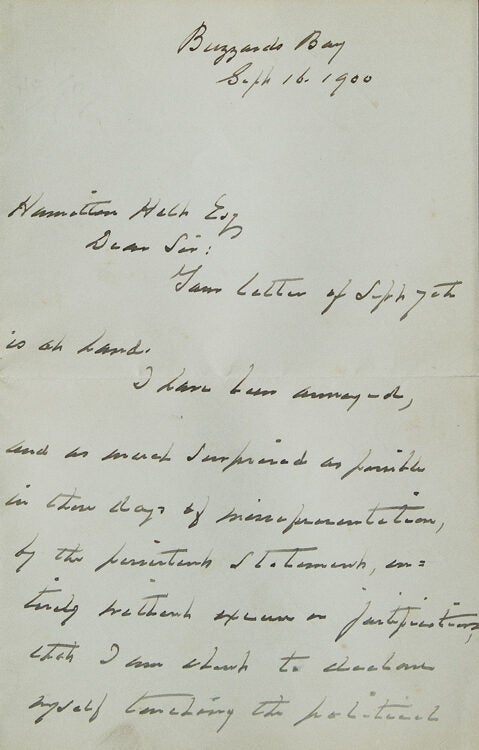 Buzzards Bay
Sept 16. 1900
Hamilton Holt Esq
Dear Sir:
Your letter of Sept 7th
is at hand.
I have been annoyed,
and as much surprised as possible
in these days of misrepresentation,
by the persistent statement, en=
tirely without excuse or justification,
that I am about to declare
myself touching the political